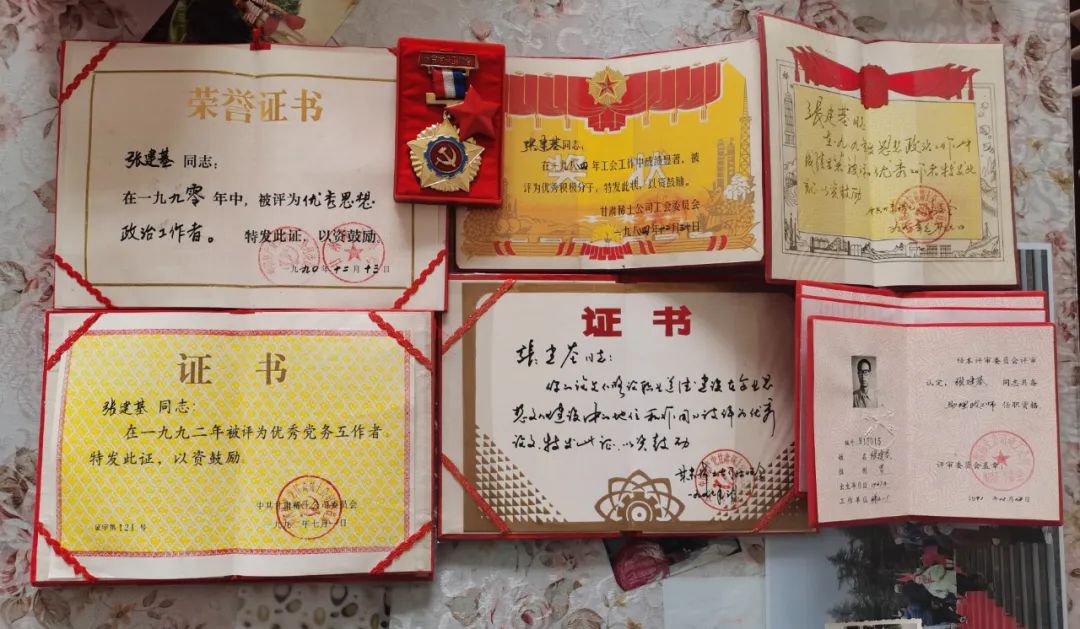 荣誉证书
张建基 同志:
在一九九零年中,被评为优秀思想
政治工作者。 特发此证,以资鼓励。
一九九0年十二月十三日
奖状
张建基同志:
在一九八四年工会工作中成绩显著,被
评为优秀积极分子,特发此状,以资鼓励。
甘肃稀土公司工会委员会
一九八四年十二月
张建基同志
以资鼓励
证书
张建基 同志:
在一九九二年被评为优秀党务工作者
特发此证,以资鼓励。
中共甘肃稀土公司委员会
七月一日
证字第121号
证书
张建基同志:
你的论文《略论职业道德建设在企业思
想文化建设中的地位和作用》被评为优秀
论文,特发此证,以资鼓励
经本评审委员会评审
认定,张建基 同志具备
助理政工师 任职资格
编号
姓名 张建基
性别 男
出生年月
工作单位
评审委员会盖章